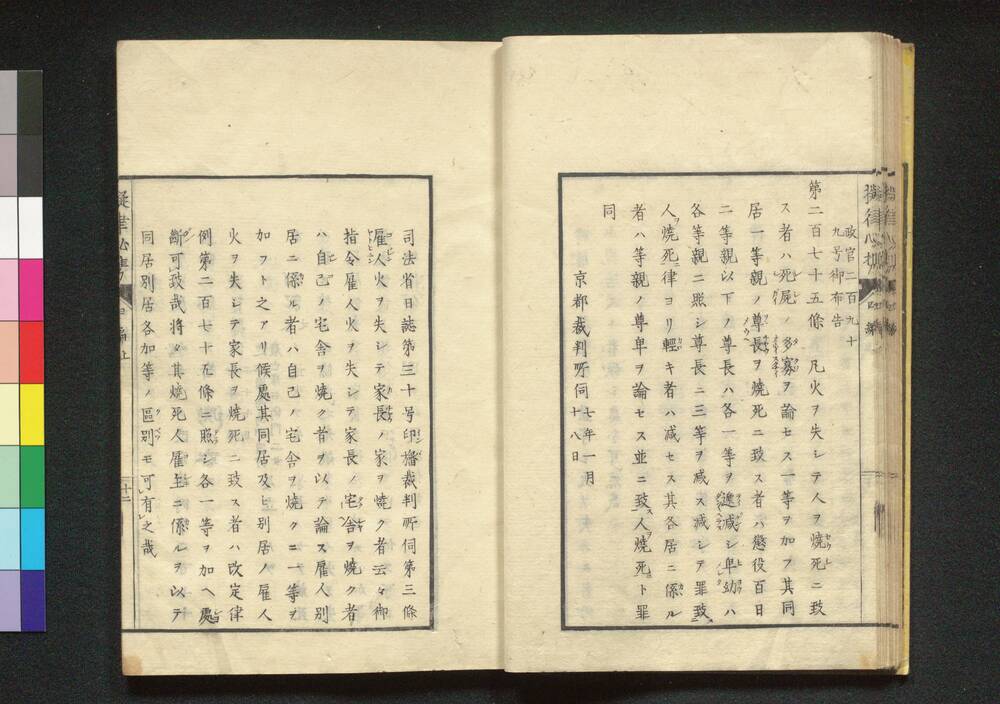 政官二百九十
九号御布告
第二百七十五條 凡火ヲ失シテ人ヲ燒死ニ致
ス者ハ死屍ノ多寡ヲ論セス一等ヲ加フ其同
居一等親ノ尊長ヲ燒死ニ致ス者ハ懲役百日
二等親以下ノ尊長ハ各一等ヲ遞減シ卑幼ハ
各等親ニ照シ尊長ニ三等ヲ减ス减シテ罪致
人ヲ燒死律ヨリ輕キ者ハ减セス其各居ニ係ル
者ハ等親ノ尊卑ヲ論セス並ニ致人燒死ト罪
同
京都裁判所伺 七年一月十八日
司法省日誌第三十号印旛裁判所伺第三條
雇人火ヲ失シテ家長ノ家ヲ燒ク者云々御
指令雇人火ヲ失シテ家長ノ宅舎ヲ燒ク者
ハ自己ノ宅舎ヲ燒ク首ヲ以テ論ス雇人別
居ニ係ル者ハ自己ノ宅舎ヲ燒クニ一等ヲ
加フト之アリ候處其同居及ヒ別居ノ雇人
火ヲ失シテ家長ヲ燒死ニ致ス者ハ改定律
例第二百七十五條ニ照シ各一等ヲ加ヘ處
斷可致哉將タ其燒死人雇主ニ係ルヲ以テ
同居別居各加等ノ區別モ可有之哉
十二